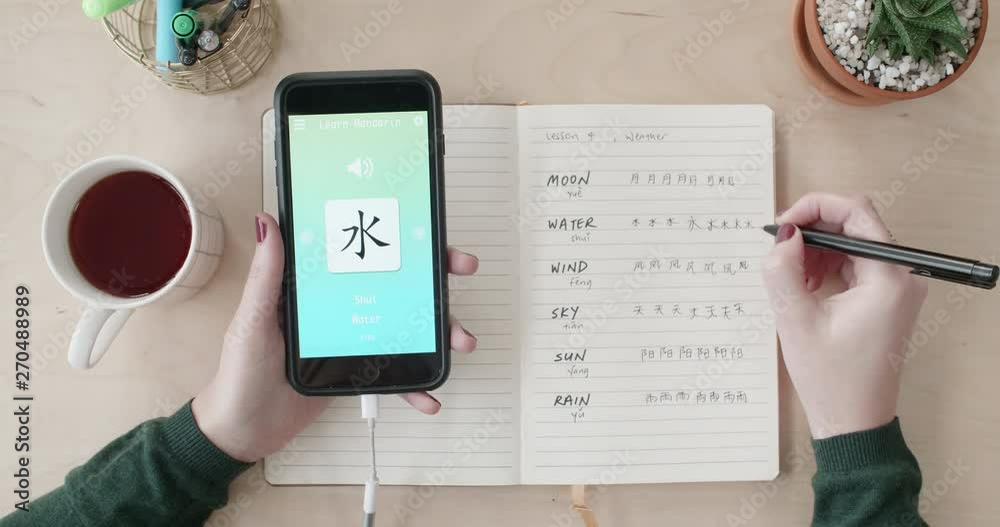 Learn Mandarin
水
Shui
Water
Lesson 4 , Weather
MOON 月 月 月 月 月 月 月
yuè
WATER 水 水 水 水 水 水 水 水
shuǐ
WIND 风 风 风 风 风 风
fēng
SKY 天 天 天 天 天 天
tiān
SUN 阳 阳 阳 阳 阳 阳
Yáng
RAIN 雨 雨 雨 雨 雨 雨
yǔ
Adobe Stock | #270488989